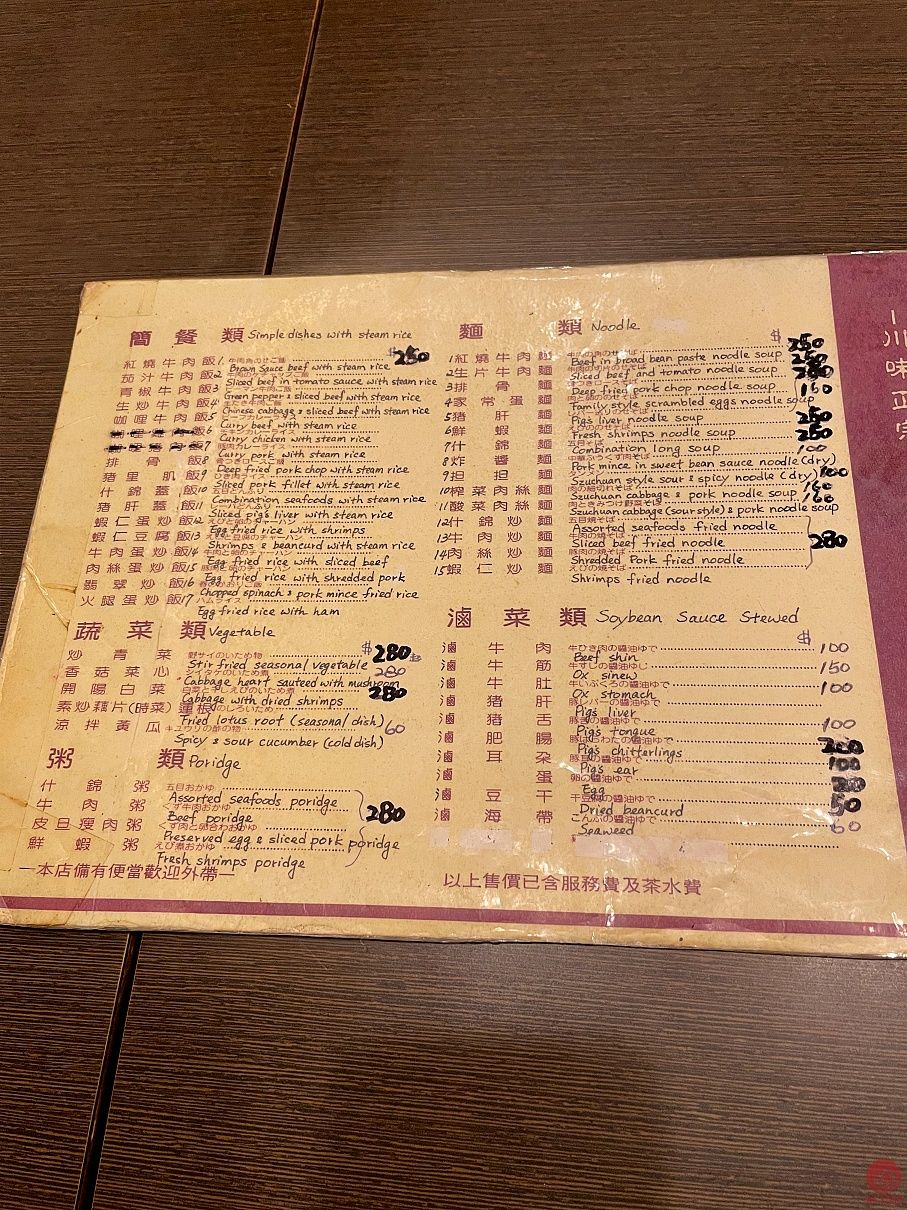 簡餐類 Simple dishes with steam rice
$
250
紅燒牛肉飯 1.
Brown Sauce beef with steam rice
茄汁牛肉飯 2
Sliced beef in tomato sauce with steam rice
青椒牛肉飯 3
Green pepper & sliced beef with steam rice
生炒牛肉飯 4
Chinese cabbage & sliced beef with steam rice
咖哩牛肉飯 5
Curry beef with steam rice
飯 6
Curry chicken with steam rice
飯 7
Curry pork with steam rice
排骨飯 8
Deep fried pork chop with steam rice
猪里肌飯 9
Sliced pork fillet with steam rice
什錦蓋飯 10
Combination seafoods with steam rice
猪肝蓋飯 11
Sliced pig's liver with steam rice
蝦仁蛋炒飯 12
Egg fried rice with shrimps
蝦仁豆腐飯 13
Shrimps & beancurd with steam rice
牛肉蛋炒飯 14
Egg fried rice with sliced beef
肉絲蛋炒飯 15
Egg fried rice with shredded pork
翡翠炒飯 16
Chopped spinach & pork mince fried rice
火腿蛋炒飯 17
Egg fried rice with ham
蔬菜類 Vegetable
$
炒青菜 野サイのいため物 280
Stir fried seasonal vegetable
香菇菜心 280
Cabbage heart sauteed with mushroom
開陽白菜 280
Cabbage with dried shrimps
素炒藕片(時菜)
Fried lotus root (seasonal dish)
涼拌黃瓜 キュウリの酢の物 60
Spicy & sour cucumber (cold dish)
粥類 Poridge
什錦粥 五目おかゆ
Assorted seafoods poridge
牛肉粥
Beef poridge
280
皮旦瘦肉粥
Preserved egg & sliced pork poridge
鮮蝦粥 えび煮おかゆ
Fresh shrimps poridge
—本店備有便當歡迎外帶—
麵類 Noodle
$
1 紅燒牛肉麵 250
Beef in broad bean paste noodle soup
2 生片牛肉麵 250
Sliced beef and tomato noodle soup
3 排骨麵
Deep fried pork chop noodle soup
4 家常蛋麵
Family style scrambled eggs noodle soup
5 猪肝麵 250
Pig's liver noodle soup
6 鮮蝦麵 250
Fresh shrimps noodle soup
7 什錦麵
Combination long soup
8 炸醬麵 100
Pork mince in sweet bean sauce noodle (dry)
9 担担麵 100
Szuchuan style sour & spicy noodle (dry)
10 榨菜肉絲麵
Szuchuan cabbage & pork noodle soup
11 酸菜肉絲麵
Szuchuan cabbage (sour style) & pork noodle soup
12 什錦炒麵 五目焼そば
Assorted seafoods fried noodle
13 牛肉炒麵 牛肉の焼そば
Sliced beef fried noodle
280
14 肉絲炒麵 豚肉の焼そば
Shredded Pork fried noodle
15 蝦仁炒麵 えびの焼そば
Shrimps fried noodle
滷菜類 Soybean Sauce Stewed
$
滷牛肉 牛ひき肉の醬油ゆで 100
Beef shin
滷牛筋 牛すじの醬油ゆじ 150
Ox sinew
滷牛肚 牛いぶくろの醬油ゆで 100
Ox stomach
滷猪肝 豚レバーの醬油ゆで
Pig's liver
滷猪舌 100
Pig's tongue
滷肥腸
Pig's chitterlings
滷耳朶 100
Pig's ear
滷蛋 卵の醬油ゆで
Egg
滷豆干 50
Dried beancurd
滷海帶 こんぶの醬油ゆで 60
Seaweed
以上售價已含服務費及茶水費
川味正宗